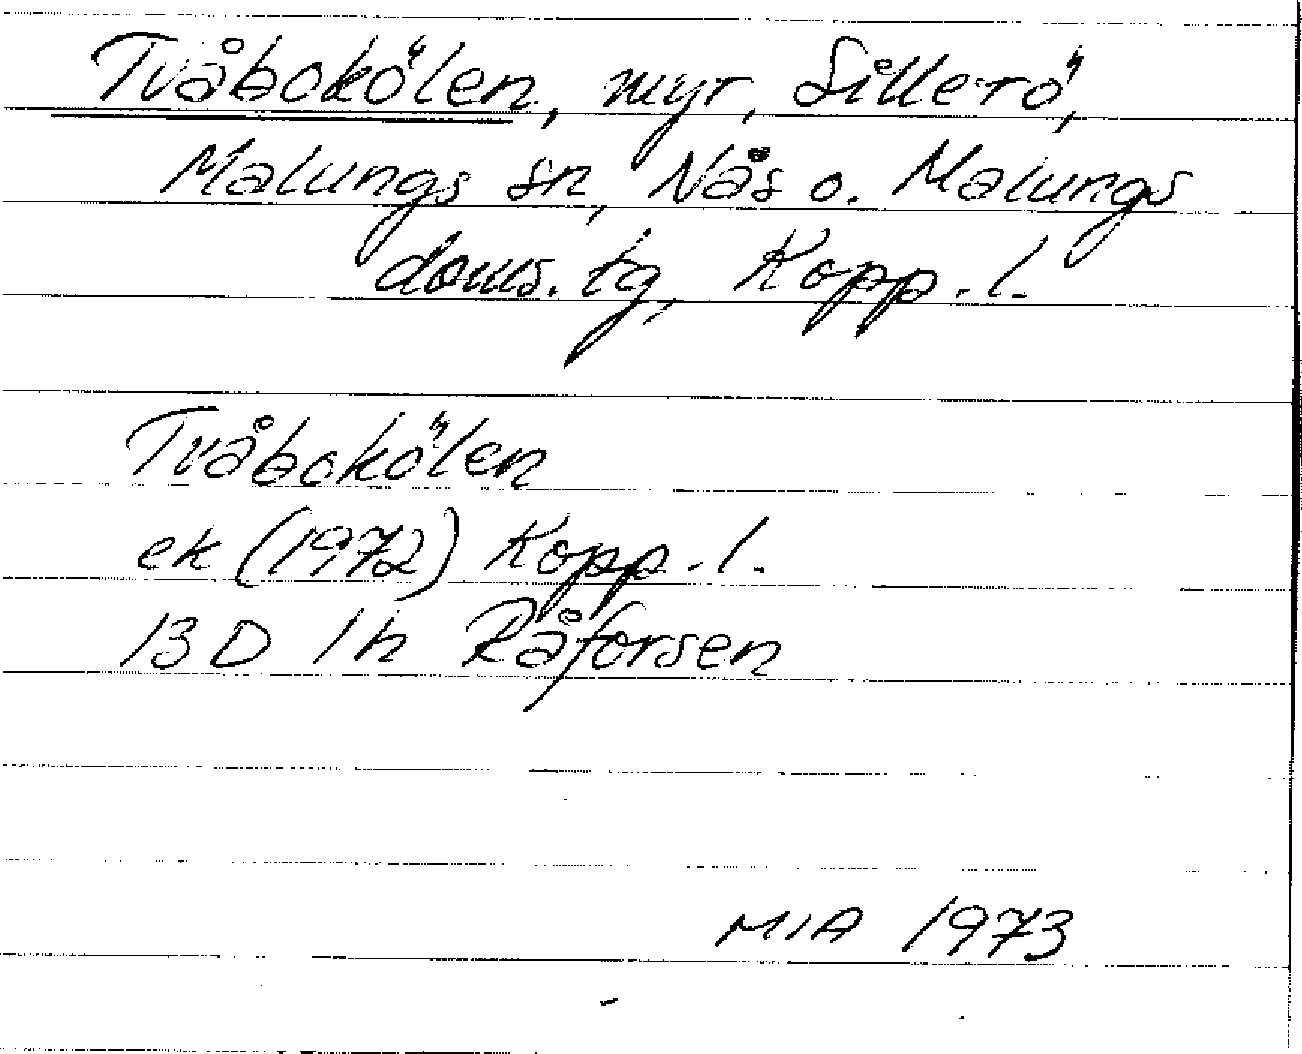 Tvåbokölen, myr, Sillerö,
Malungs sn, Nås o. Malungs
doms. tg, Kopp. l.
Tvåbokölen
ek (1972) Kopp. l.
13 D 1h Råforsen
MIA 1973